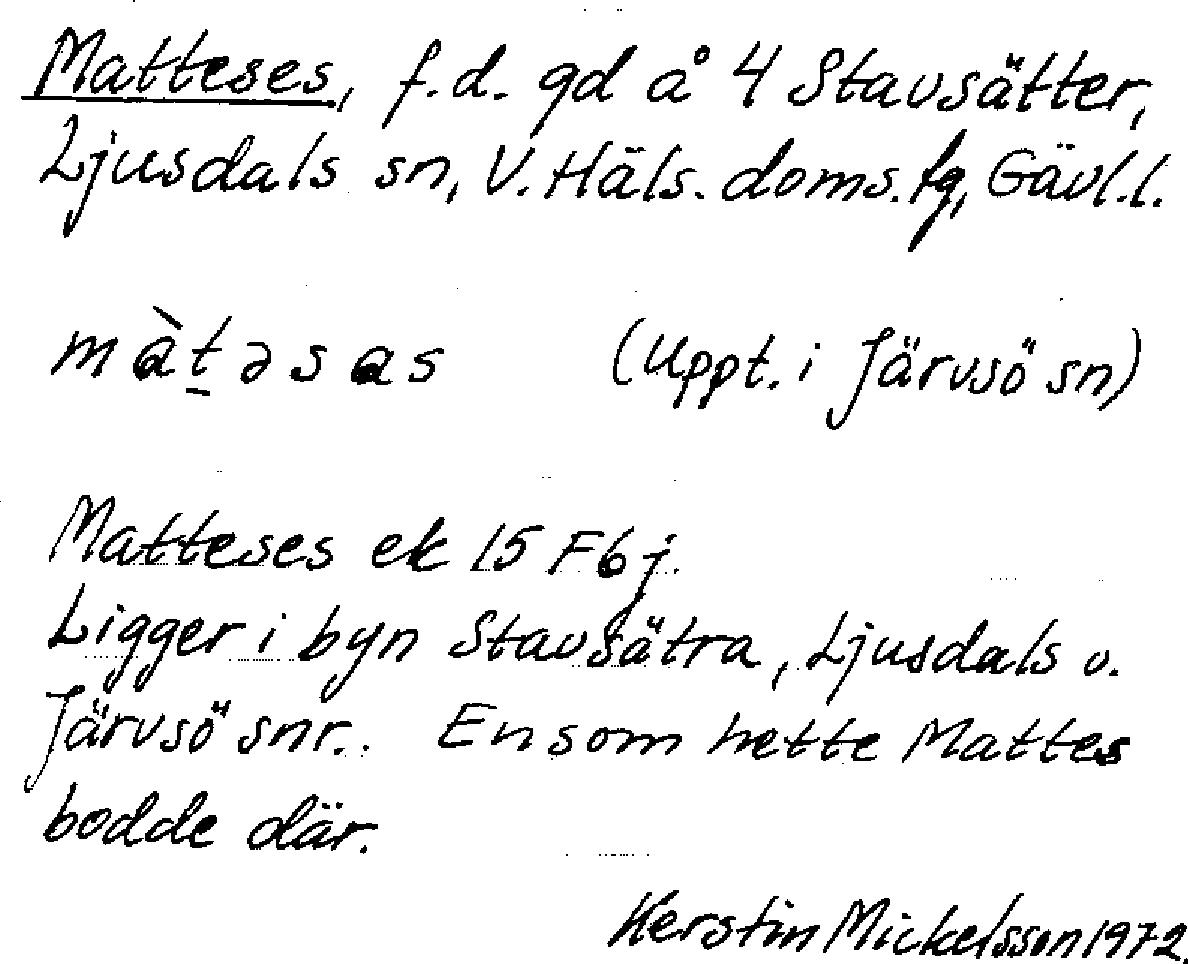 Matteses, f.d. gd å 4 Stavsätter,
Ljusdals sn, V. Häls. doms.fg, Gävl.l.
màt̲əsas (Uppt. i Järvsö sn)
Matteses ek 15 F6j.
Ligger i byn Stavsätra, Ljusdals o.
Järvsö snr.. En som hette Mattes
bodde där.
Kerstin Mickelsson 1972.